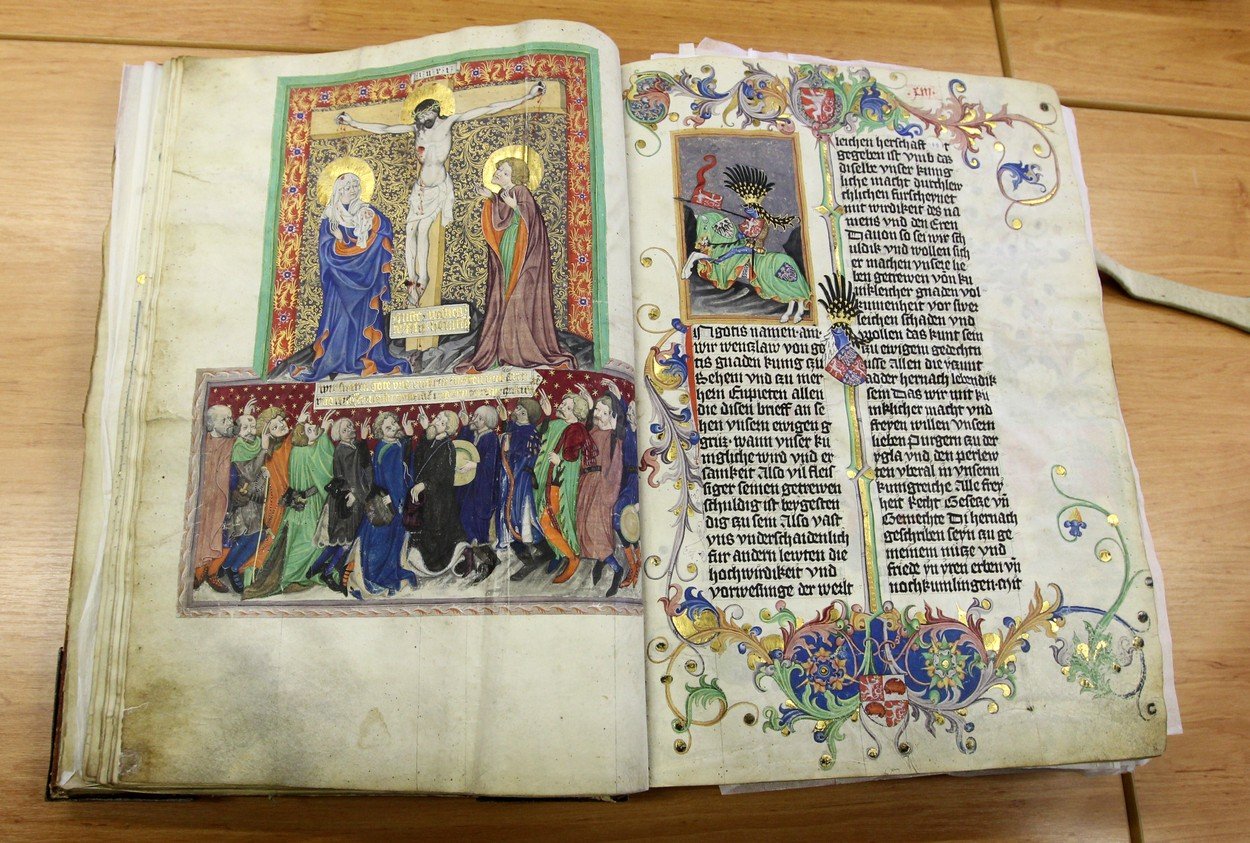 gotis namen
wir wenzlaw von go
tis gnaden kung czu
Behem vnd czu mer
hern Enpieten allen
die disen brieff an se
hen vnsern ewigen g
wann vnser ku
ngliche wird vnd er
samkeit Also vil fleis
siger seinen getrewen
schuldig ist beygesten
dig czu sein Also vast
vns vnderschaidenlich
fur andern lewten die
hochwirdikeit vnd
vorwesunge der werlt
leichen herschaft
gegeben ist vmb das
diselbe vnser kung
liche macht durchlew
chtlichen furscheyner
mit wirdikeit des na
mens vnd den Eren
Dauon so sei wir sch
uldik vnd wollen sich
er machen vnsere lie
ben getrewen von ku
nikleicher gnaden vol
kumenheit vor swer
leichen schaden vnd
wollen das kunt sein
czu ewigem gedechtn
usse allen die yczunt
ader hernach lebendik
sein Das wir mit ku
niklicher macht vnd
freyen willen vnsern
lieben Purgern czu der
ygla vnd den perlew
ten vberal in vnserm
kunigreiche Alle frey
heit Recht Gesetze vn
Gemechte Di hernach
geschriben seyn czu ge
meinem nutze vnd
friede yn yren erben vn
nochkumlingen